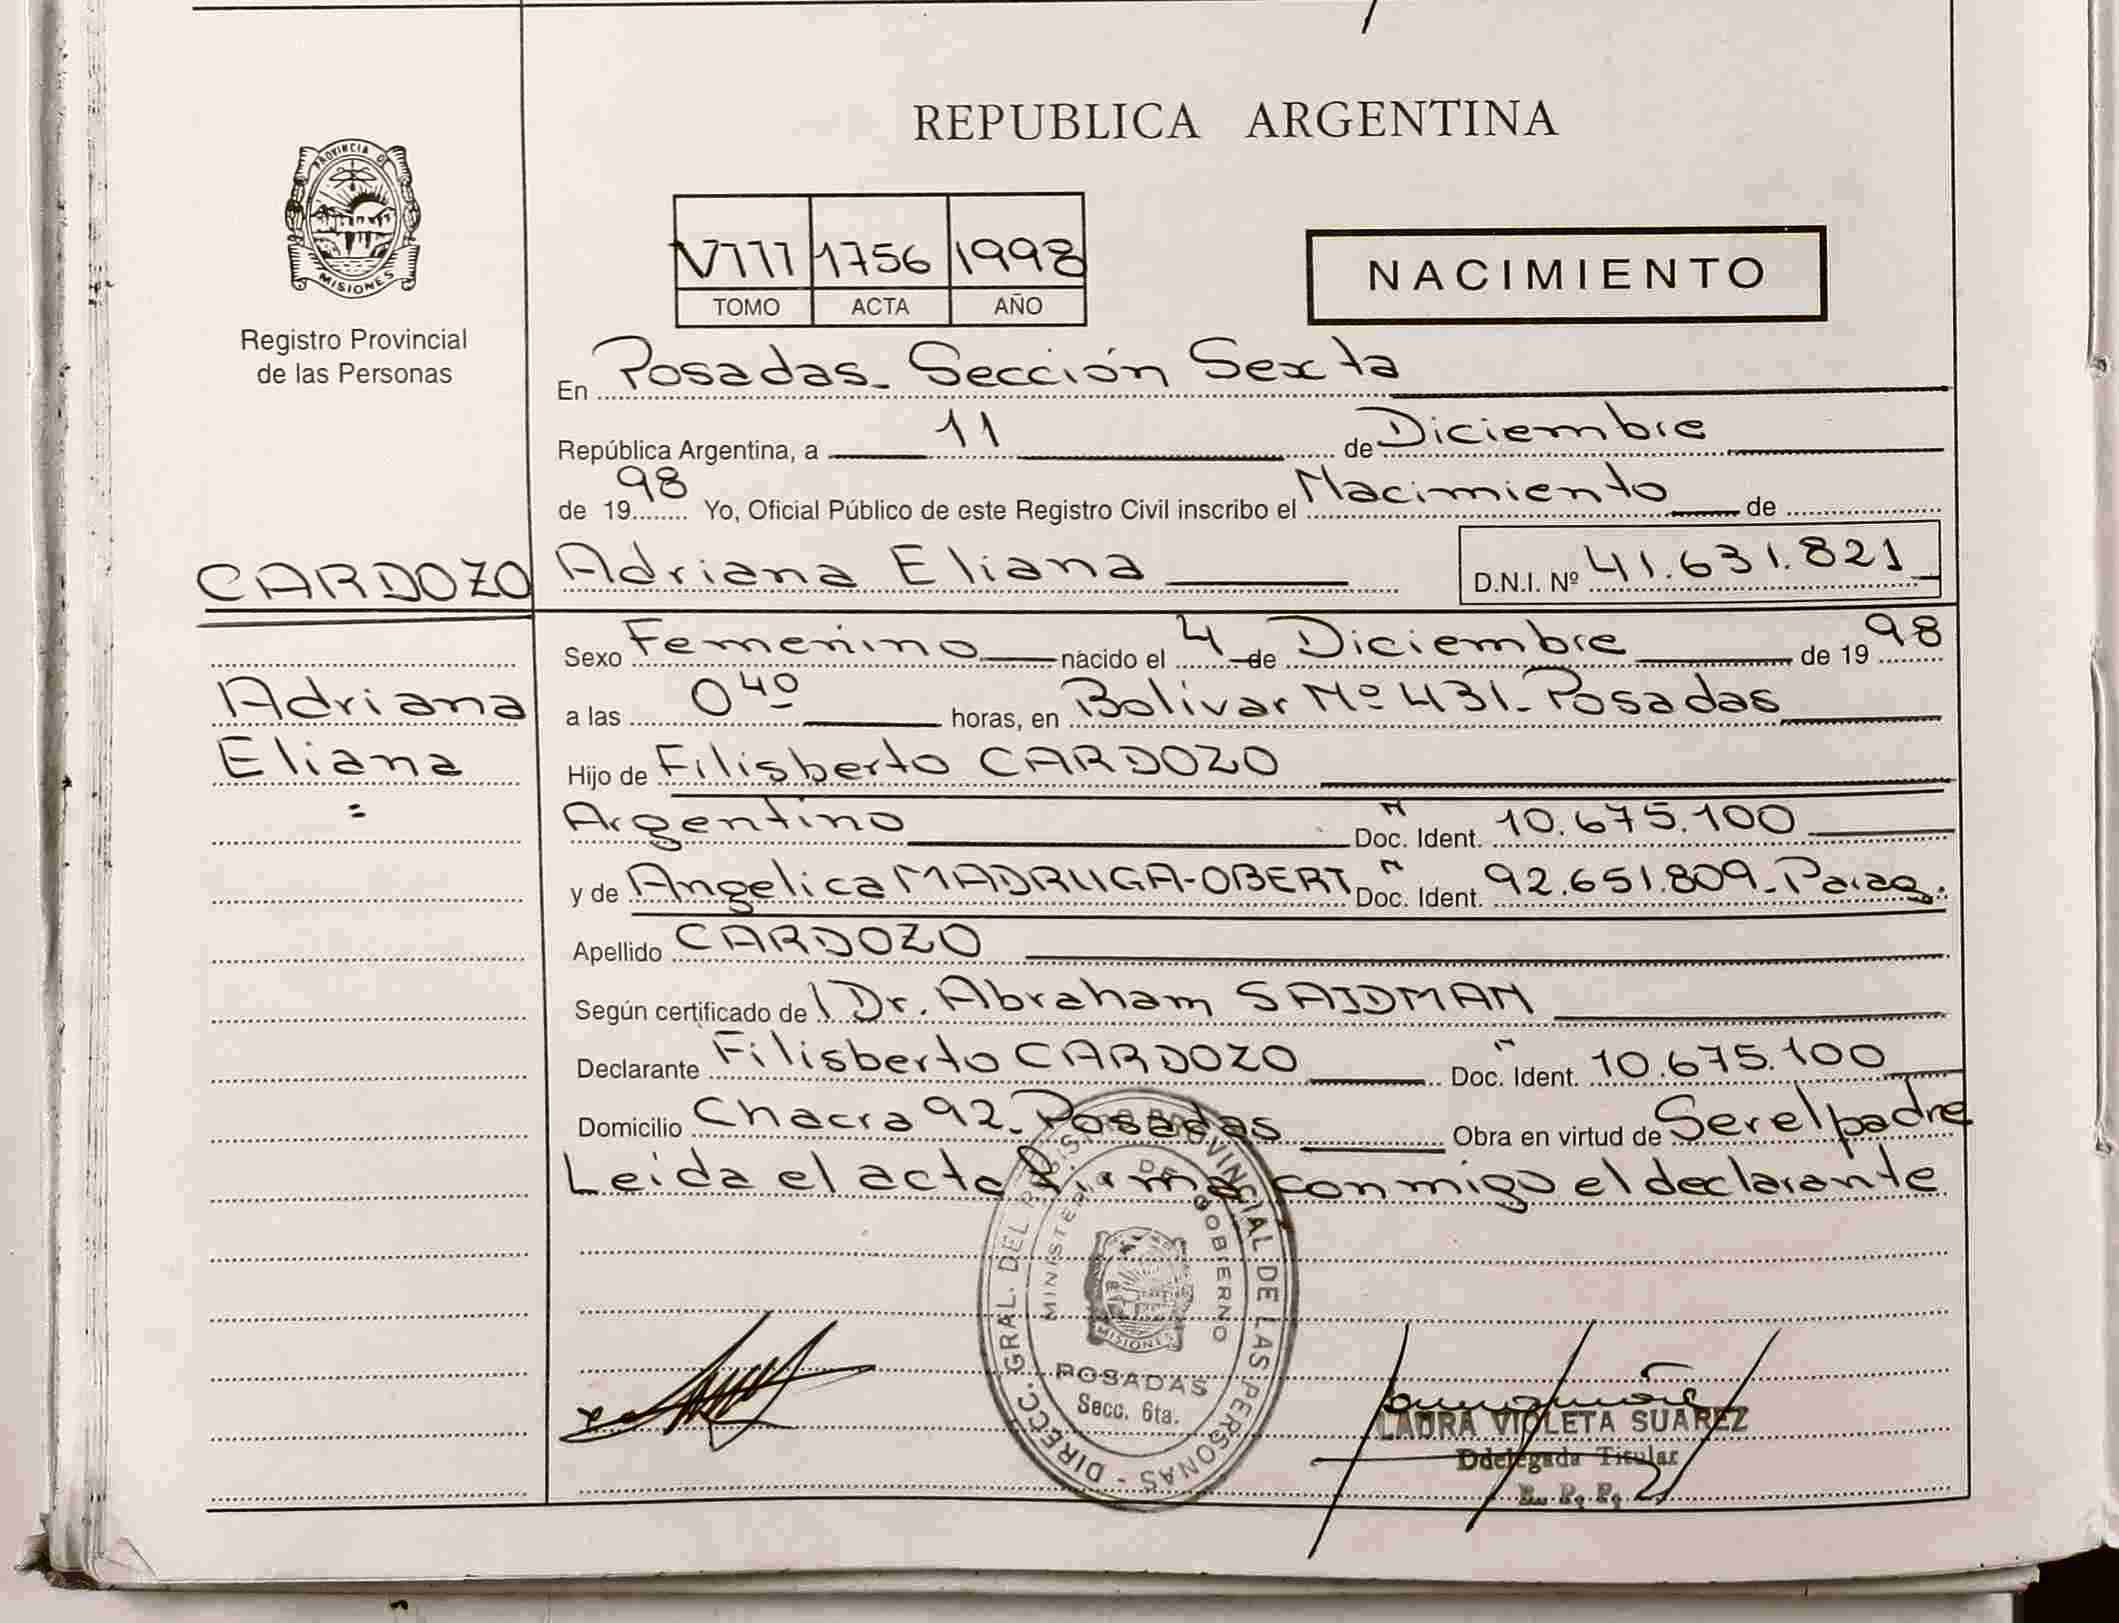 REPUBLICA ARGENTINA
PROVINCIA DE
MISIONES
Registro Provincial
de las Personas
VIII 1756 1998
TOMO ACTA AÑO
NACIMIENTO
En Posadas - Sección Sexta
República Argentina, a 11 de Diciembre
de 1998 Yo, Oficial Público de este Registro Civil inscribo el Nacimiento de
CARDOZO
Adriana
Eliana
=
Adriana Eliana D.N.I. Nº 41.631.821
Sexo Femenino nacido el 4 de Diciembre de 1998
a las 0 40 horas, en Bolívar Nº 431 - Posadas
Hijo de Filisberto CARDOZO
Argentino Doc. Ident. 10.675.100
y de Angelica MADRUGA-OBERT Doc. Ident. 92.651.809 - Parag.
Apellido CARDOZO
Según certificado de Dr. Abraham SAIDMAN
Declarante Filisberto CARDOZO Doc. Ident. 10.675.100
Domicilio Chacra 92 - Posadas Obra en virtud de Ser el padre
Leida el acta firma conmigo el declarante
DIRECC. GRAL. DEL REGISTRO PROVINCIAL DE LAS PERSONAS -
MINISTERIO DE GOBIERNO
MISIONES
POSADAS
Secc. 6ta.
LAURA VIOLETA SUAREZ
Ddelegada Titular
R. P. P.